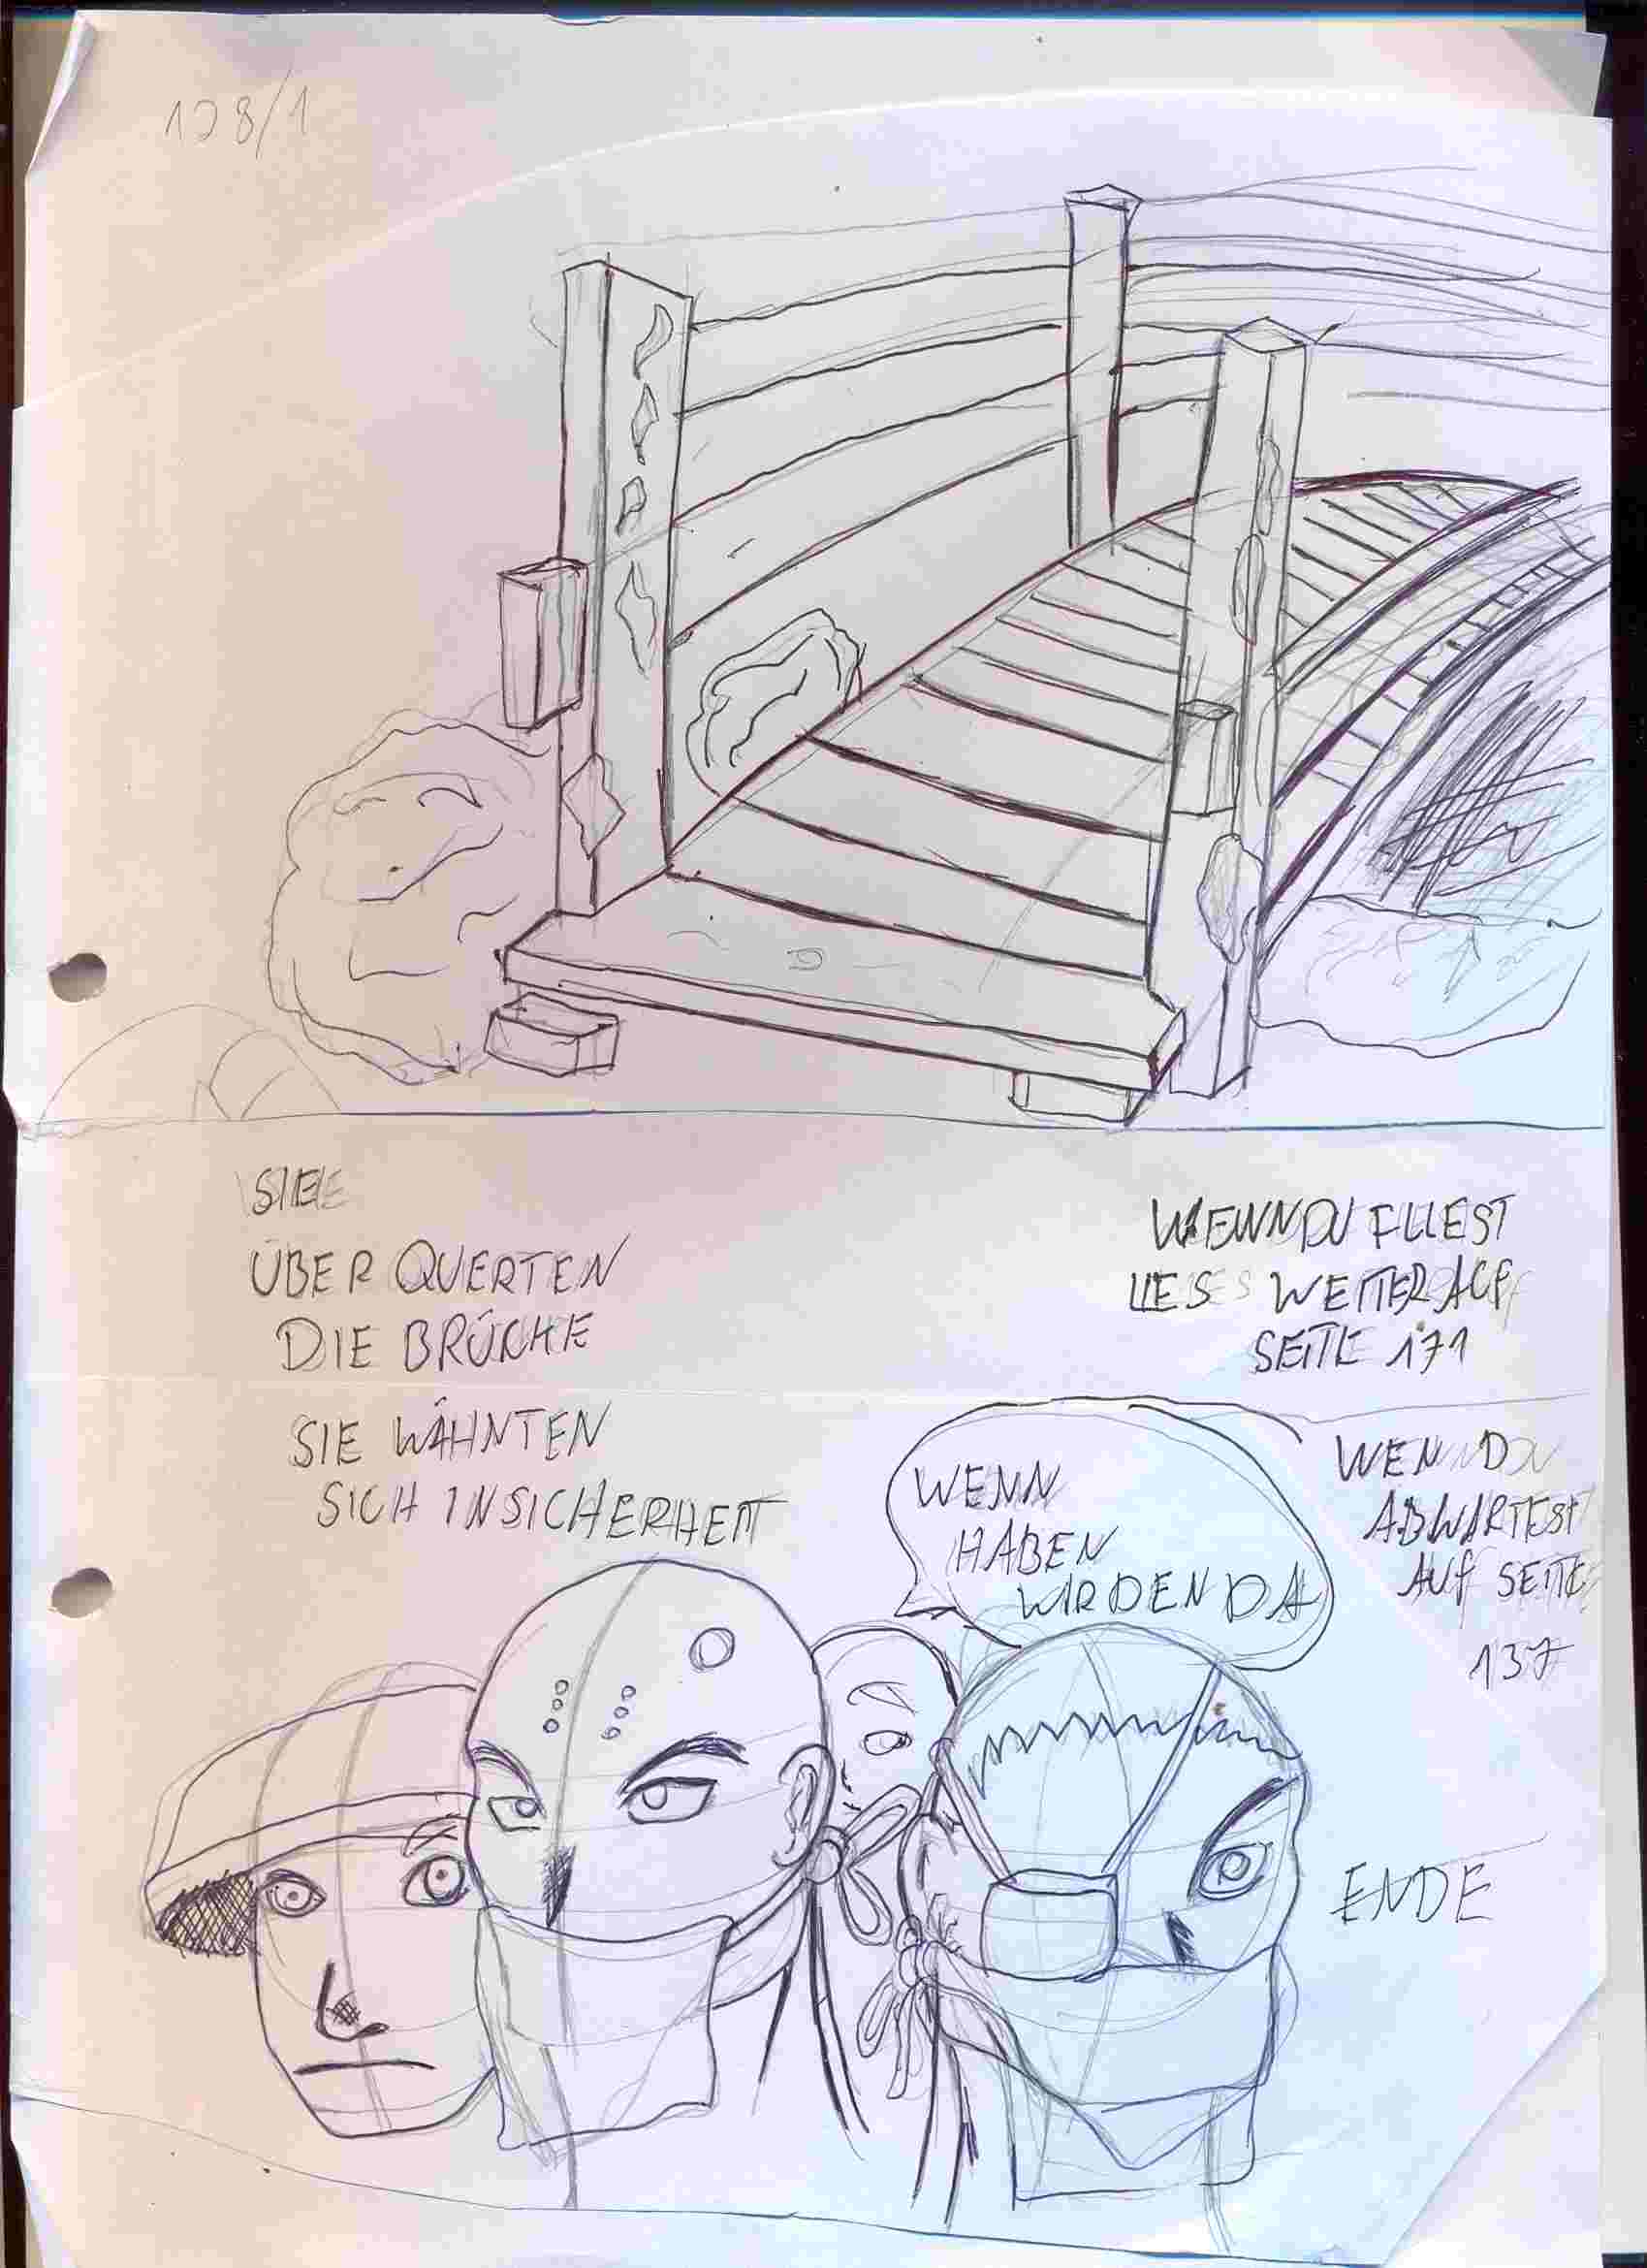 128/1
SIE
ÜBERQUERTEN
DIE BRÜCKE
WENN DU FLIEST
LIES WEITER AUF
SEITE 171
SIE WÄHNTEN
SICH IN SICHERHEIT
WENN
HABEN
WIR DEN DA
WENN DU
ABWARTEST
AUF SEITE
137
ENDE